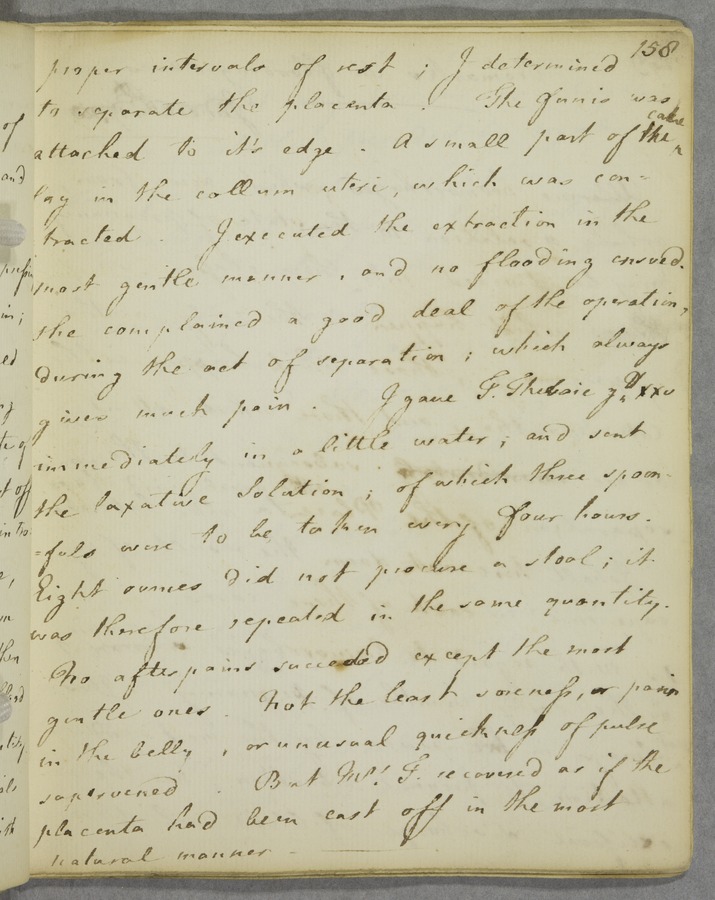 158
proper intervals of rest ; I determined
to separate the placenta . The funis was
attached to it's edge . A small part of the cake
lay in the collum uteri, which was con-
tracted . I executed the extraction in the
most gentle manner , and no flooding ensued.
she complained a good deal of the operation,
during the act of separation ; which always
gives much pain . I gave T. Thebaic gtt xxv
immediately in a little water ; and sent
the laxative Solution ; of which three spoon-
=fuls were to be taken every four hours .
Eight ounces did not procure a stool ; it
was therefore repeated in the same quantity.
No afterpains succeeded except the most
gentle ones . Not the least soreness, or pain
in the belly , or unusual quickness of pulse
supervened . But Mrs. F. recovered as if the
placenta had been cast off in the most
natural manner .